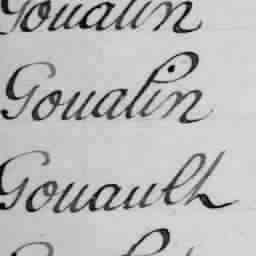 Goualin
Goualin
Gouault